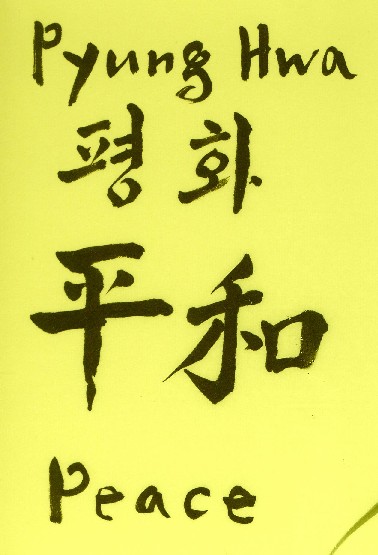 Pyung Hwa
평화
平和
Peace